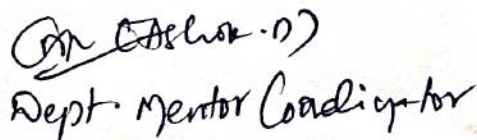 (Ashok.D)
Dept. Mentor Coordinator